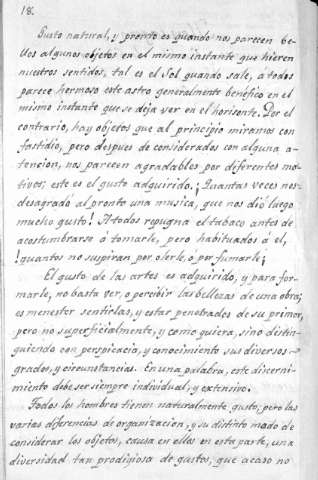 18.
Gusto natural, y pronto es quando nos parecen be-
llos algunos objetos en el mismo instante que hieren
nuestros sentidos, tal es el Sol quando sale, a todos
parece hermoso este astro generalmente benefico en el
mismo instante que se deja ver en el horisonte. Por el
contrario, hay objetos que al principio miramos con
fastidio, pero despues de considerados con alguna a-
tencion, nos parecen agradables por diferentes mo-
tivos; este es el gusto adquirido. ¡Quantas veces nos
desagradó al pronto una musica, que nos dió luego
mucho gusto! A todos repugna el tabaco antes de
acostumbrarse á tomarle, pero habituados á el,
!quantos no suspiran por olerle, o por fumarle¡
El gusto de las artes es adquirido, y para for-
marle, no basta ver, o percibir las bellezas de una obra;
es menester sentirlas, y estar penetrados de su primor,
pero no superficialmente, y como quiera, sino distin-
guiendo con perspicacia, y conocimiento sus diversos
grados, y circunstancias. En una palabra, este discerni-
miento debe ser siempre individual, y extensivo.
Todos los hombres tienen naturalmente gusto, pero las
varias diferencias de organizacion, y su distinto modo de
considerar los objetos, causa en ellos en esta parte, una
diversidad tan prodigiosa de gustos, que acaso no